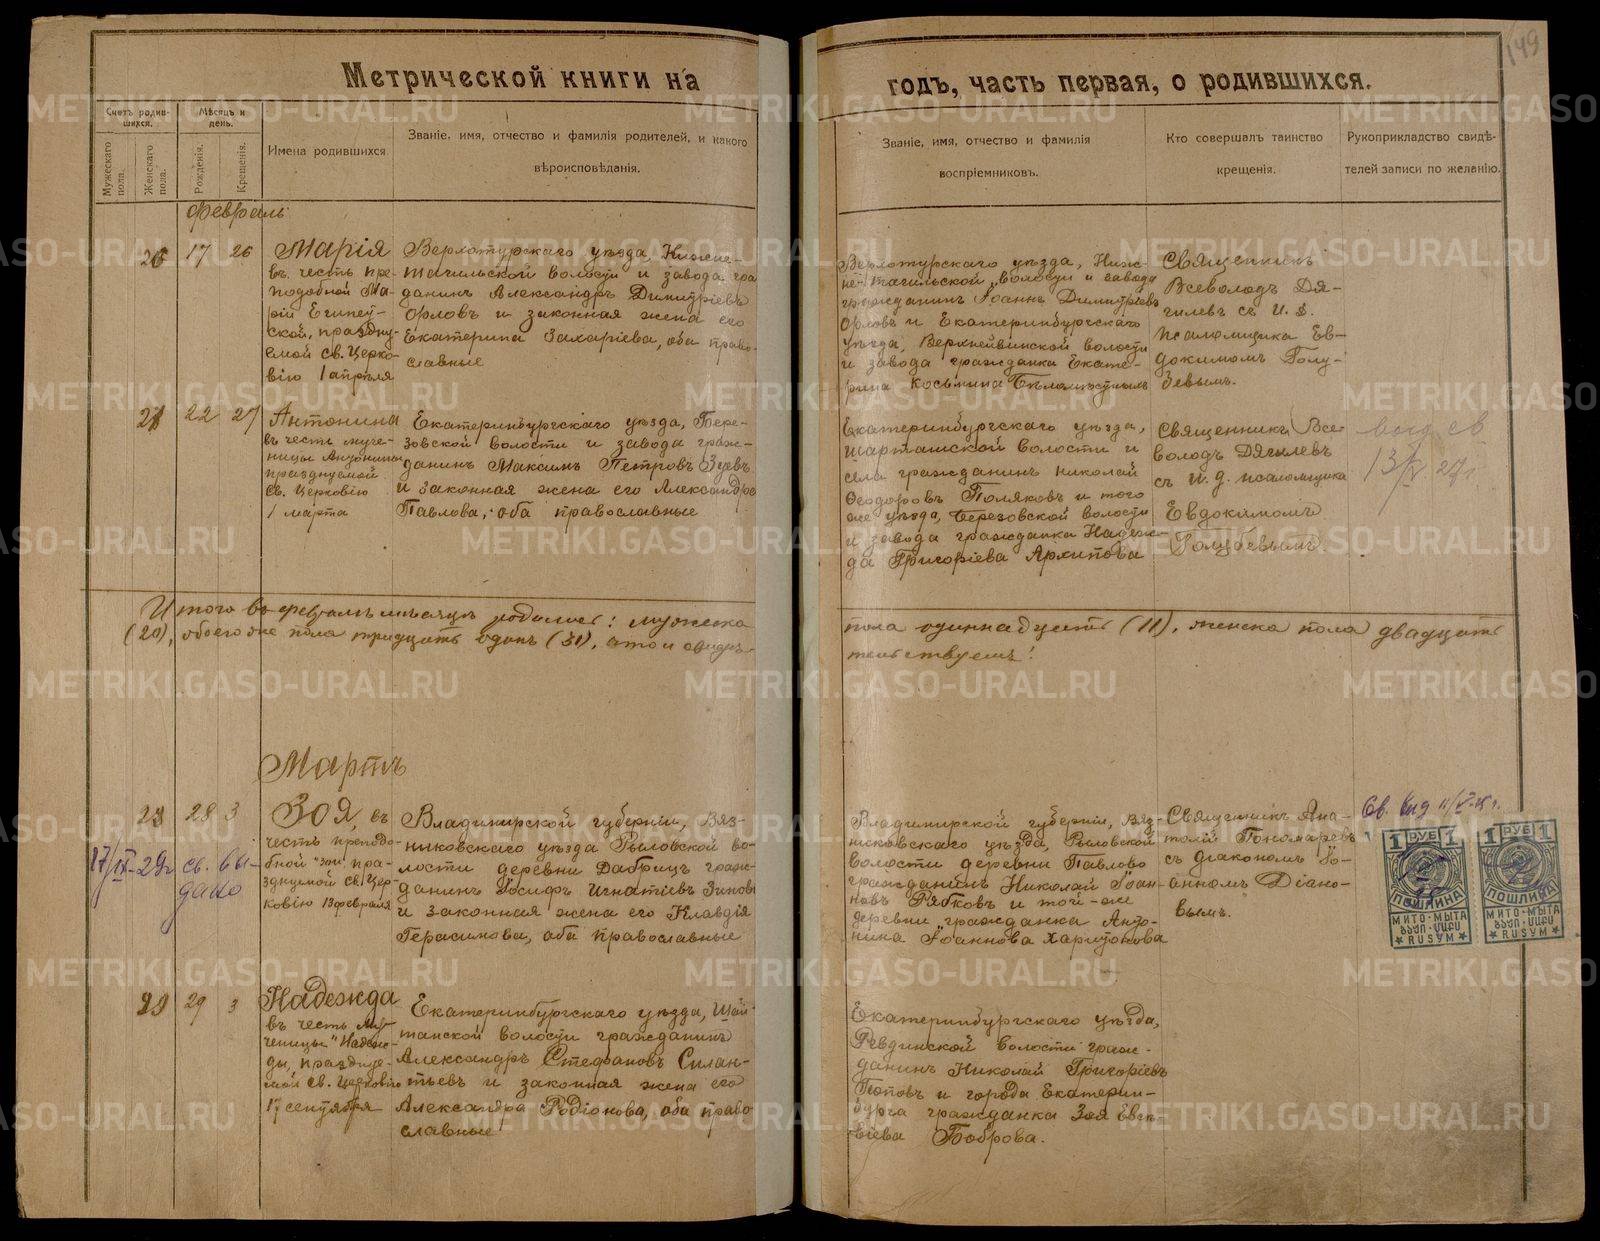 149
Метрической книги на
годъ, часть первая, о родившихся.
Счетъ родив-
шихся.
Мѣсяцъ и
день.
Мужескаго
пола.
Женскаго
пола.
Рожденія.
Крещенія.
Имена родившихся
Званіе, имя, отчество и фамилія родителей, и какого
вѣроисповѣданія.
Званіе, имя, отчество и фамилія
воспріемниковъ.
Кто совершалъ таинство
крещенія.
Рукоприкладство свидѣ-
телей записи по желанію.
Февраль
26 17 26
Марія
въ честь пре-
подобной Ма-
ріи Египет-
ской, праздну-
емой св. Церко-
вію 1 апрѣля
Верхотурскаго уѣзда, Нижне-
тагильской волости и завода гра
данинъ Александръ Димитріевъ
Орловъ и законная жена его
Екатерина Захаріева, оба право-
славные
Верхотурскаго уѣзда, Ниж-
не-тагильской волости и завода
гражданинъ Іоаннъ Димитріевъ
Орловъ и Екатеринбургскаго
уѣзда, Верхнейвинской волости
и завода гражданка Екате-
рина Косьмина
Священникъ
Всеволодъ Дя-
гилевъ съ И. д.
псаломщика Ев-
докимомъ Голу-
бевымъ.
22 27
Антонина
въ честь муче-
ницы Антонины
празднуемой
св. Церковію
1 марта
Екатеринбургскаго уѣзда, Бере-
зовской волости и завода граж-
данинъ Максимъ Петровъ Зуевъ
и законная жена его Александра
Павлова, оба православные
Екатеринбургскаго уѣзда,
Шарташской волости и
села гражданинъ Николай
Феодоровъ Поляковъ и того
же уѣзда, Березовской волости
и завода гражданка Надеж-
да Григоріева Архипова
Священникъ Все
володъ Дягилевъ
съ И. д. псаломщика
Евдокимомъ
Голубевымъ.
выд. св
13/X 27 г.
Итого въ февралѣ мѣсяцѣ родилось: мужска
пола одиннадцать (11), женска пола двадцать
(20), обоего же пола тридцать одинъ (31), въ томъ свидѣ-
тельствуемъ:
Мартъ
28 3
Зоя, въ
честь преподо-
бной Зои пра-
зднуемой св. Цер-
ковію 13 февраля
17/IX-29г св. вы-
дано
Владимирской губерніи, Вяз-
никовскаго уѣзда Рыловской во-
лости деревни Дабрицъ граж-
данинъ Іосифъ Игнатіевъ Зинов
и законная жена его Клавдія
Герасимова, оба православные
Владимирской губерніи, Вяз-
никовскаго уѣзда, Рыловской
волости деревни Павлово
гражданинъ Николай Іоан-
новъ Рябковъ и той-же
деревни гражданка Анто-
нина Іоаннова Харитонова
Священникъ Ана-
толій Пономаревъ
съ діакономъ Іо-
анномъ Діано-
вымъ.
Св. выд
1 РУБ 1
ПОШЛИНА
МИТО·МЫТА
RUSYM
1 РУБ 1
ПОШЛИНА
МИТО·МЫТА
RUSYM
29 3
Надежда
въ честь му-
ченицы Надеж-
ды, празднуе-
мой св. Церковію
17 сентября
Екатеринбургскаго уѣзда, Шай-
танской волости гражданинъ
Александръ Стефановъ Силан-
тьевъ и законная жена его
Александра Родіонова, оба право
славные
Екатеринбургскаго уѣзда,
Ревдинской волости граж-
данинъ Николай Григоріевъ
Поповъ и города Екатерин-
бурга гражданка Зоя Евге-
ніева Боброва.
METRIKI.GASO-URAL.RU